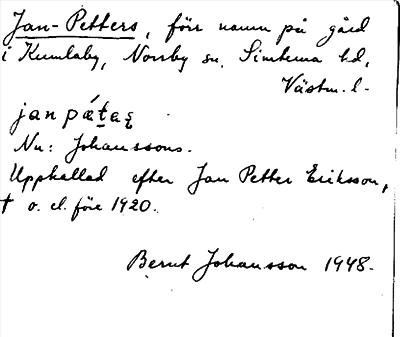 Jan-Petters, förr namn på gård
i Kumlaby, Norrby sn, Simtuna hd,
Västm. l.
jan pǽtaș
Nu: Johanssons.
Uppkallad efter Jan Petter Eriksson,
† o. el. före 1920.
Bernt Johansson 1948.